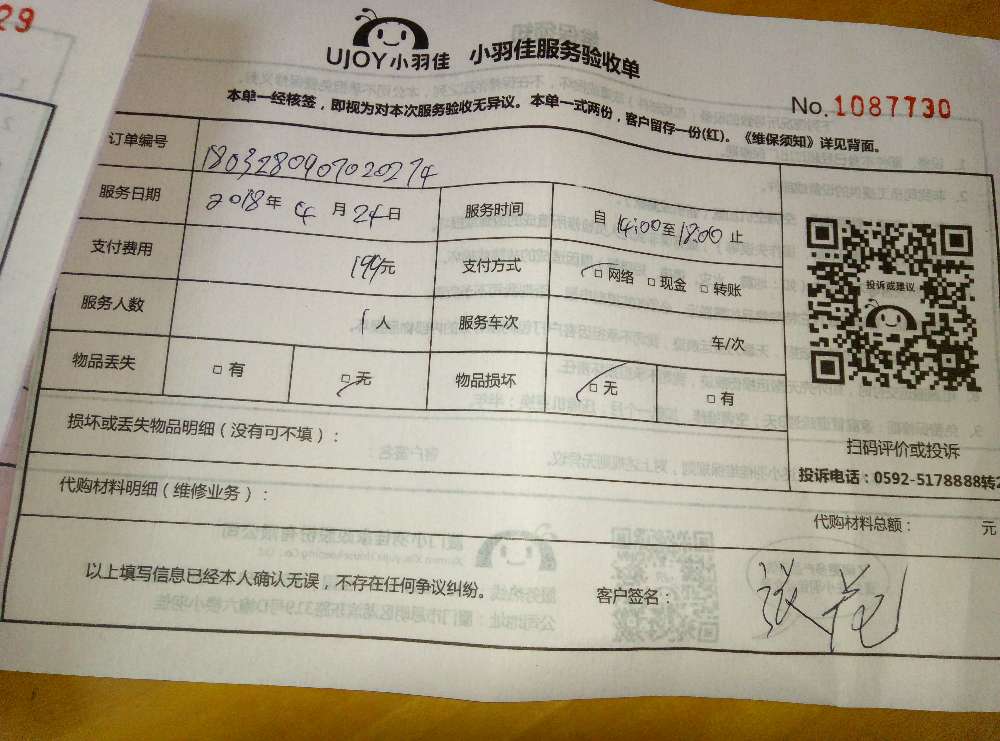 29
UJOY小羽佳 小羽佳服务验收单
No.1087730
本单一经核签，即视为对本次服务验收无异议。本单一式两份，客户留存一份(红)。《维保须知》详见背面。
订单编号 1803280907020274
服务日期 2018年 4月 24日 服务时间 自 14:00至18:00止
支付费用 199元 支付方式 □网络 □现金 □转账
服务人数 1人 服务车次 车/次
物品丢失 □有 □无 物品损坏 □无 □有
投诉或建议
扫码评价或投诉
投诉电话：0592-5178888转2
损坏或丢失物品明细（没有可不填）：
代购材料明细（维修业务）：
代购材料总额： 元
以上填写信息已经本人确认无误，不存在任何争议纠纷。 客户签名：